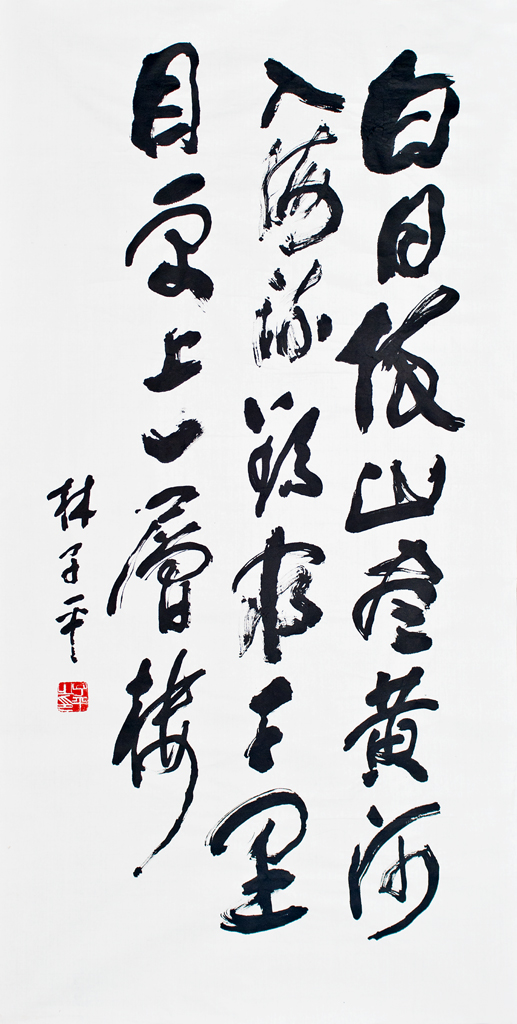 白日依山盡黄河
入海流欲窮千里
目更上一層楼
林子平